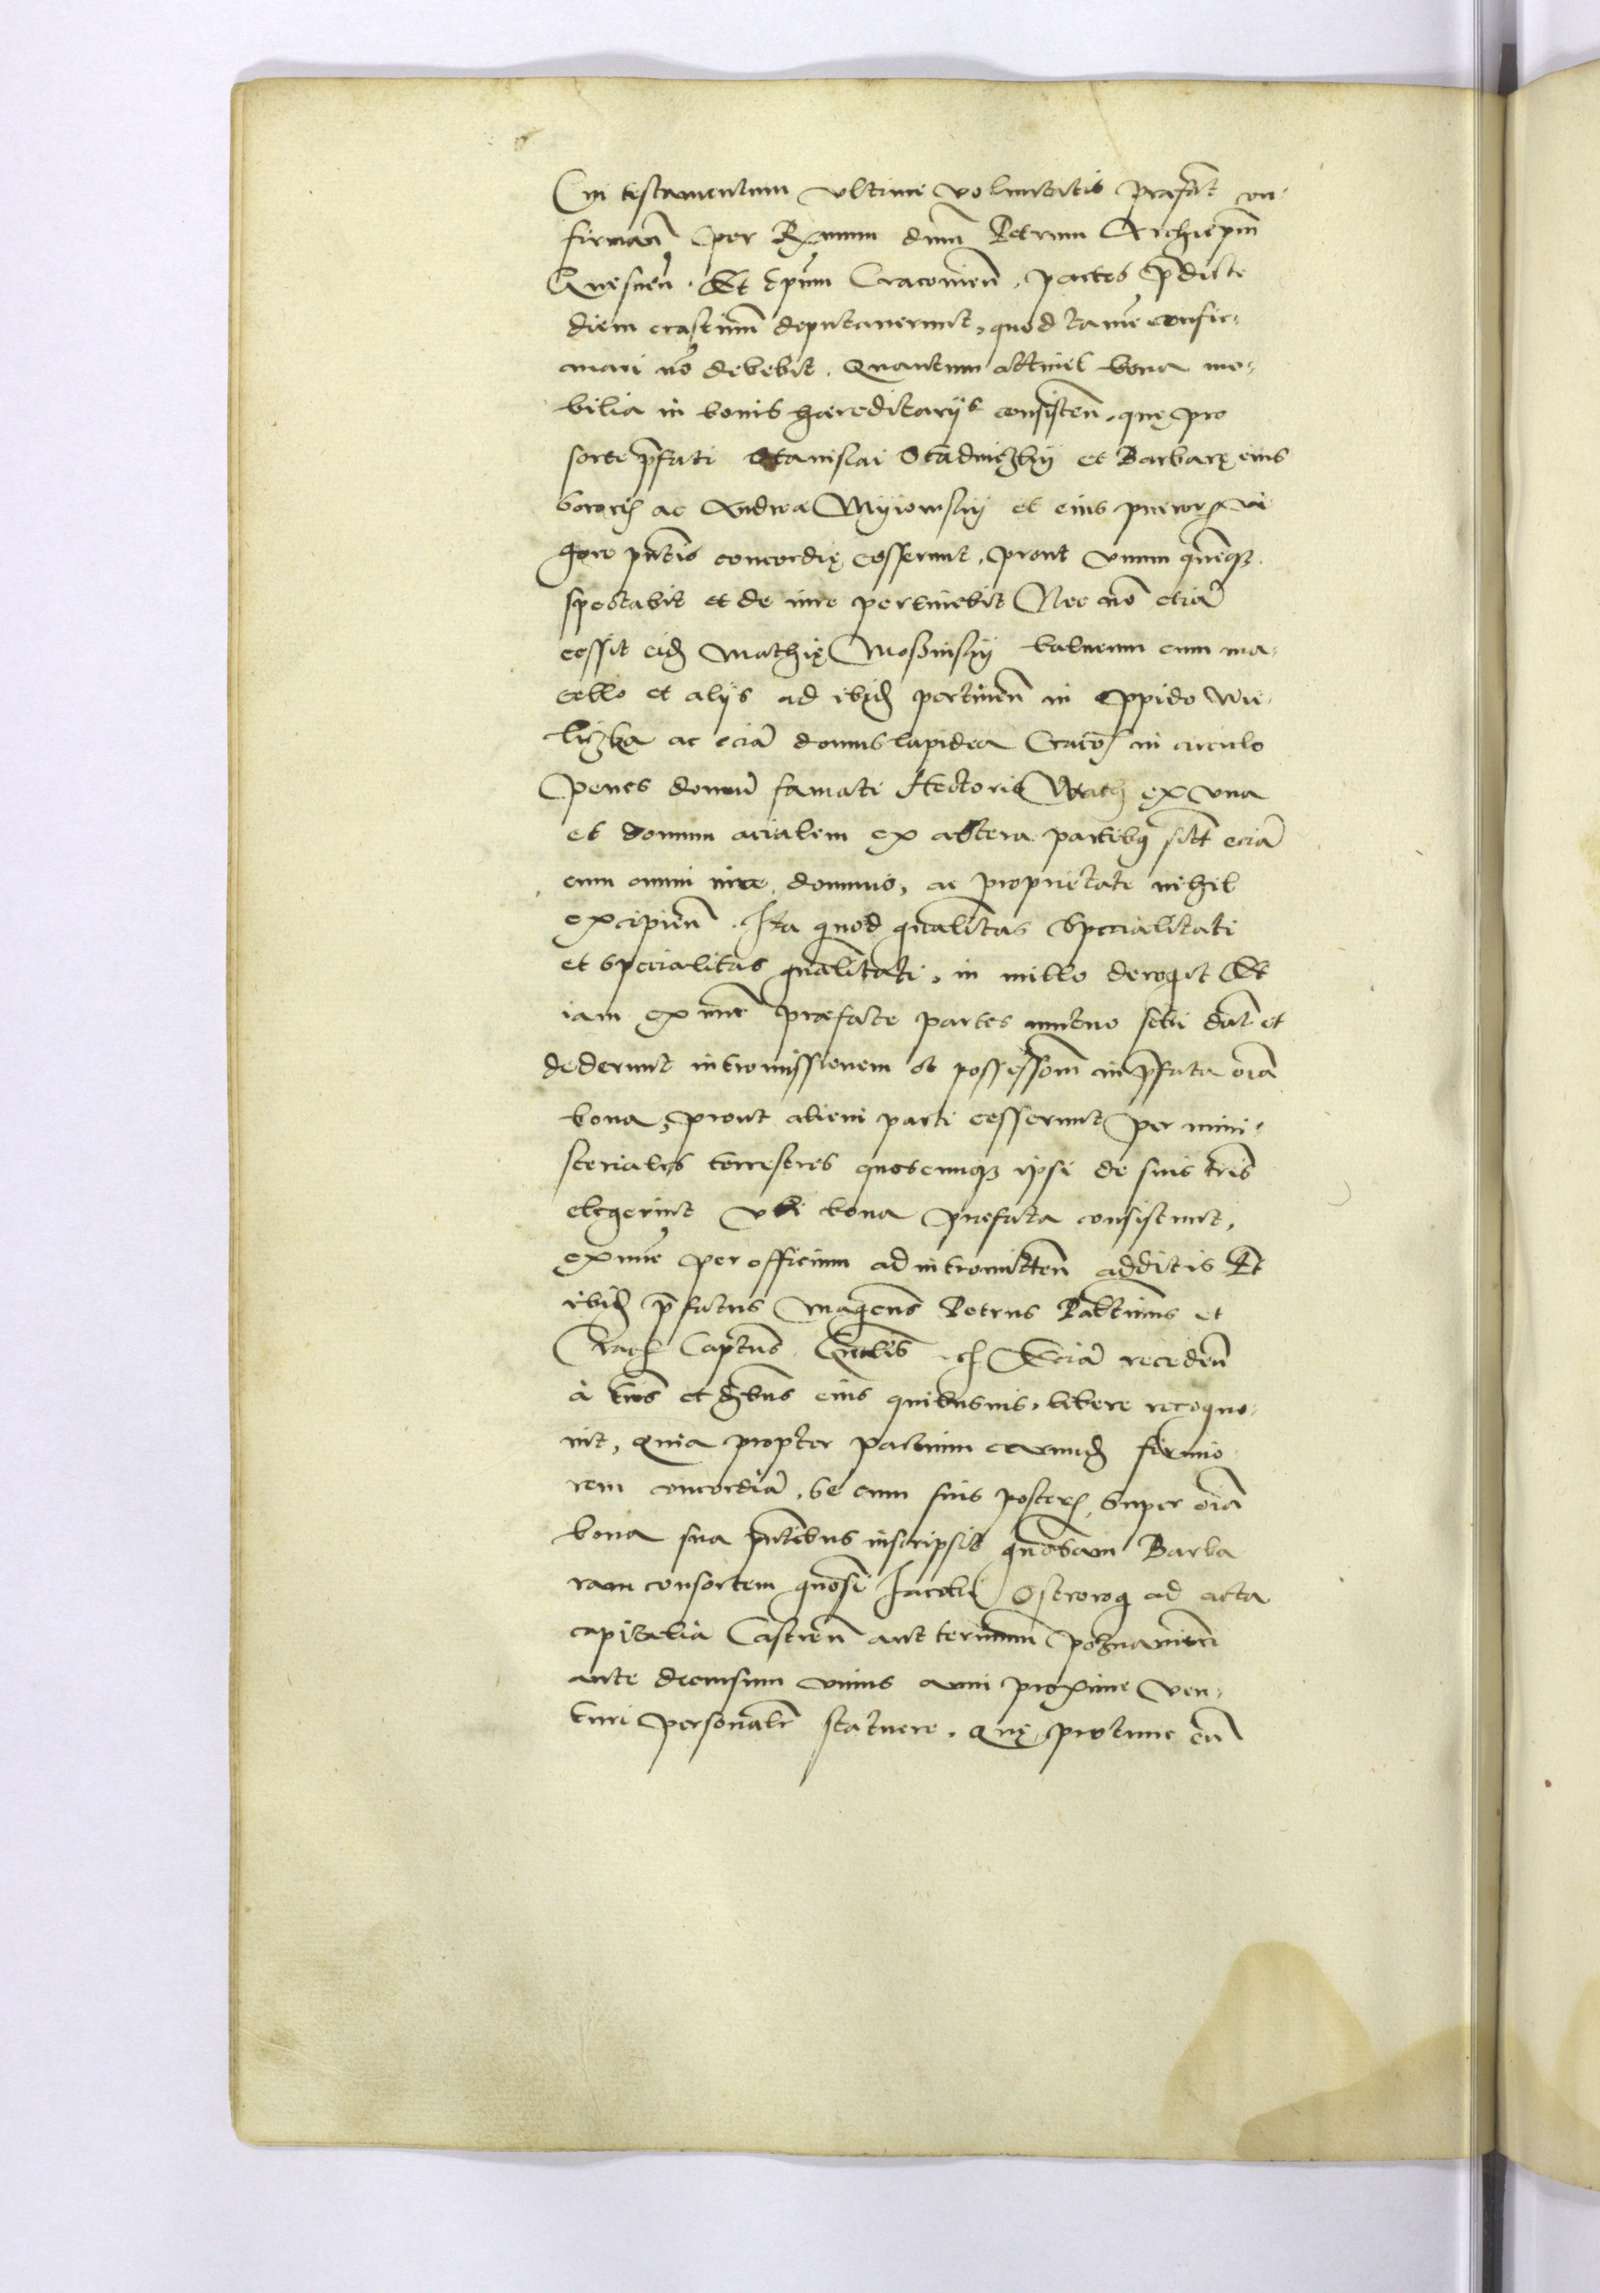 Cui testamentum ultime voluntatis praefat con-
firmañ per Rxmum dnm̃ Petrum Archiepm̃
Gnesneñ. Et Epũm Cracovieñ. partes p̃dicte
diem crastinum̃ deputaverunt, quod tamẽ confir-
mari nõ debebit. Quantum attinet bona mo-
bilia in bonis haereditarijs consisteñ. quę pro
sorte p̃fati Stanislai Stadniczkij et Barbarę eius
sororis ac Andrea Myiomskij et eius pueror vi
gore pñtis concordię cesserunt, prout unum quemq3
spectabit et de iure pertinebit Nec nõ etiã
cessit eid Mathię Mossinskij balneum cum ma-
cello et alijs ad ibid pertineñ in oppido Wie-
liczka ac eciã domus lapidea Craco in circulo
penes domũ famati Hectoris ex una
et domum acialem ex altera partibq sitt eciã
cum omni iure, dominio, ac proprietate nihil
excipieñ. Ita quod gñalitas specialitati
et specialitas gñalitati, in nullo deroget Et
iam ex nũc praefate partes mutuo sibi dãt et
dederunt intromissionem et possessõm in p̃fata oĩa
bona, prout alicui parti cesserunt per mini-
steriales terrestres quoscumq3 ipsi de suis tr̃is
elegerint ubi bona praefata consistunt,
ex nũc per officium ad intromitteñ additis Et
ibid p̃fatus Magcus Petrus Palatinus et
Crac Captnus Gnalis Eciã recedeñ
à tr̃is et eius quibusvis, libere recogno-
vit, Quia propter pactum earund firmio
rem concordiã, se cum suis poster, super oĩa
bona sua pñtibus inscripsit gñosam Barba
ram consortem gñosi Jacobi Ostrorog ad acta
capitalia Castreñ aut terminum Poznanieñ
ante decursum unius anni proxime ven-
turi personalr statuere. Quę protunc cũ